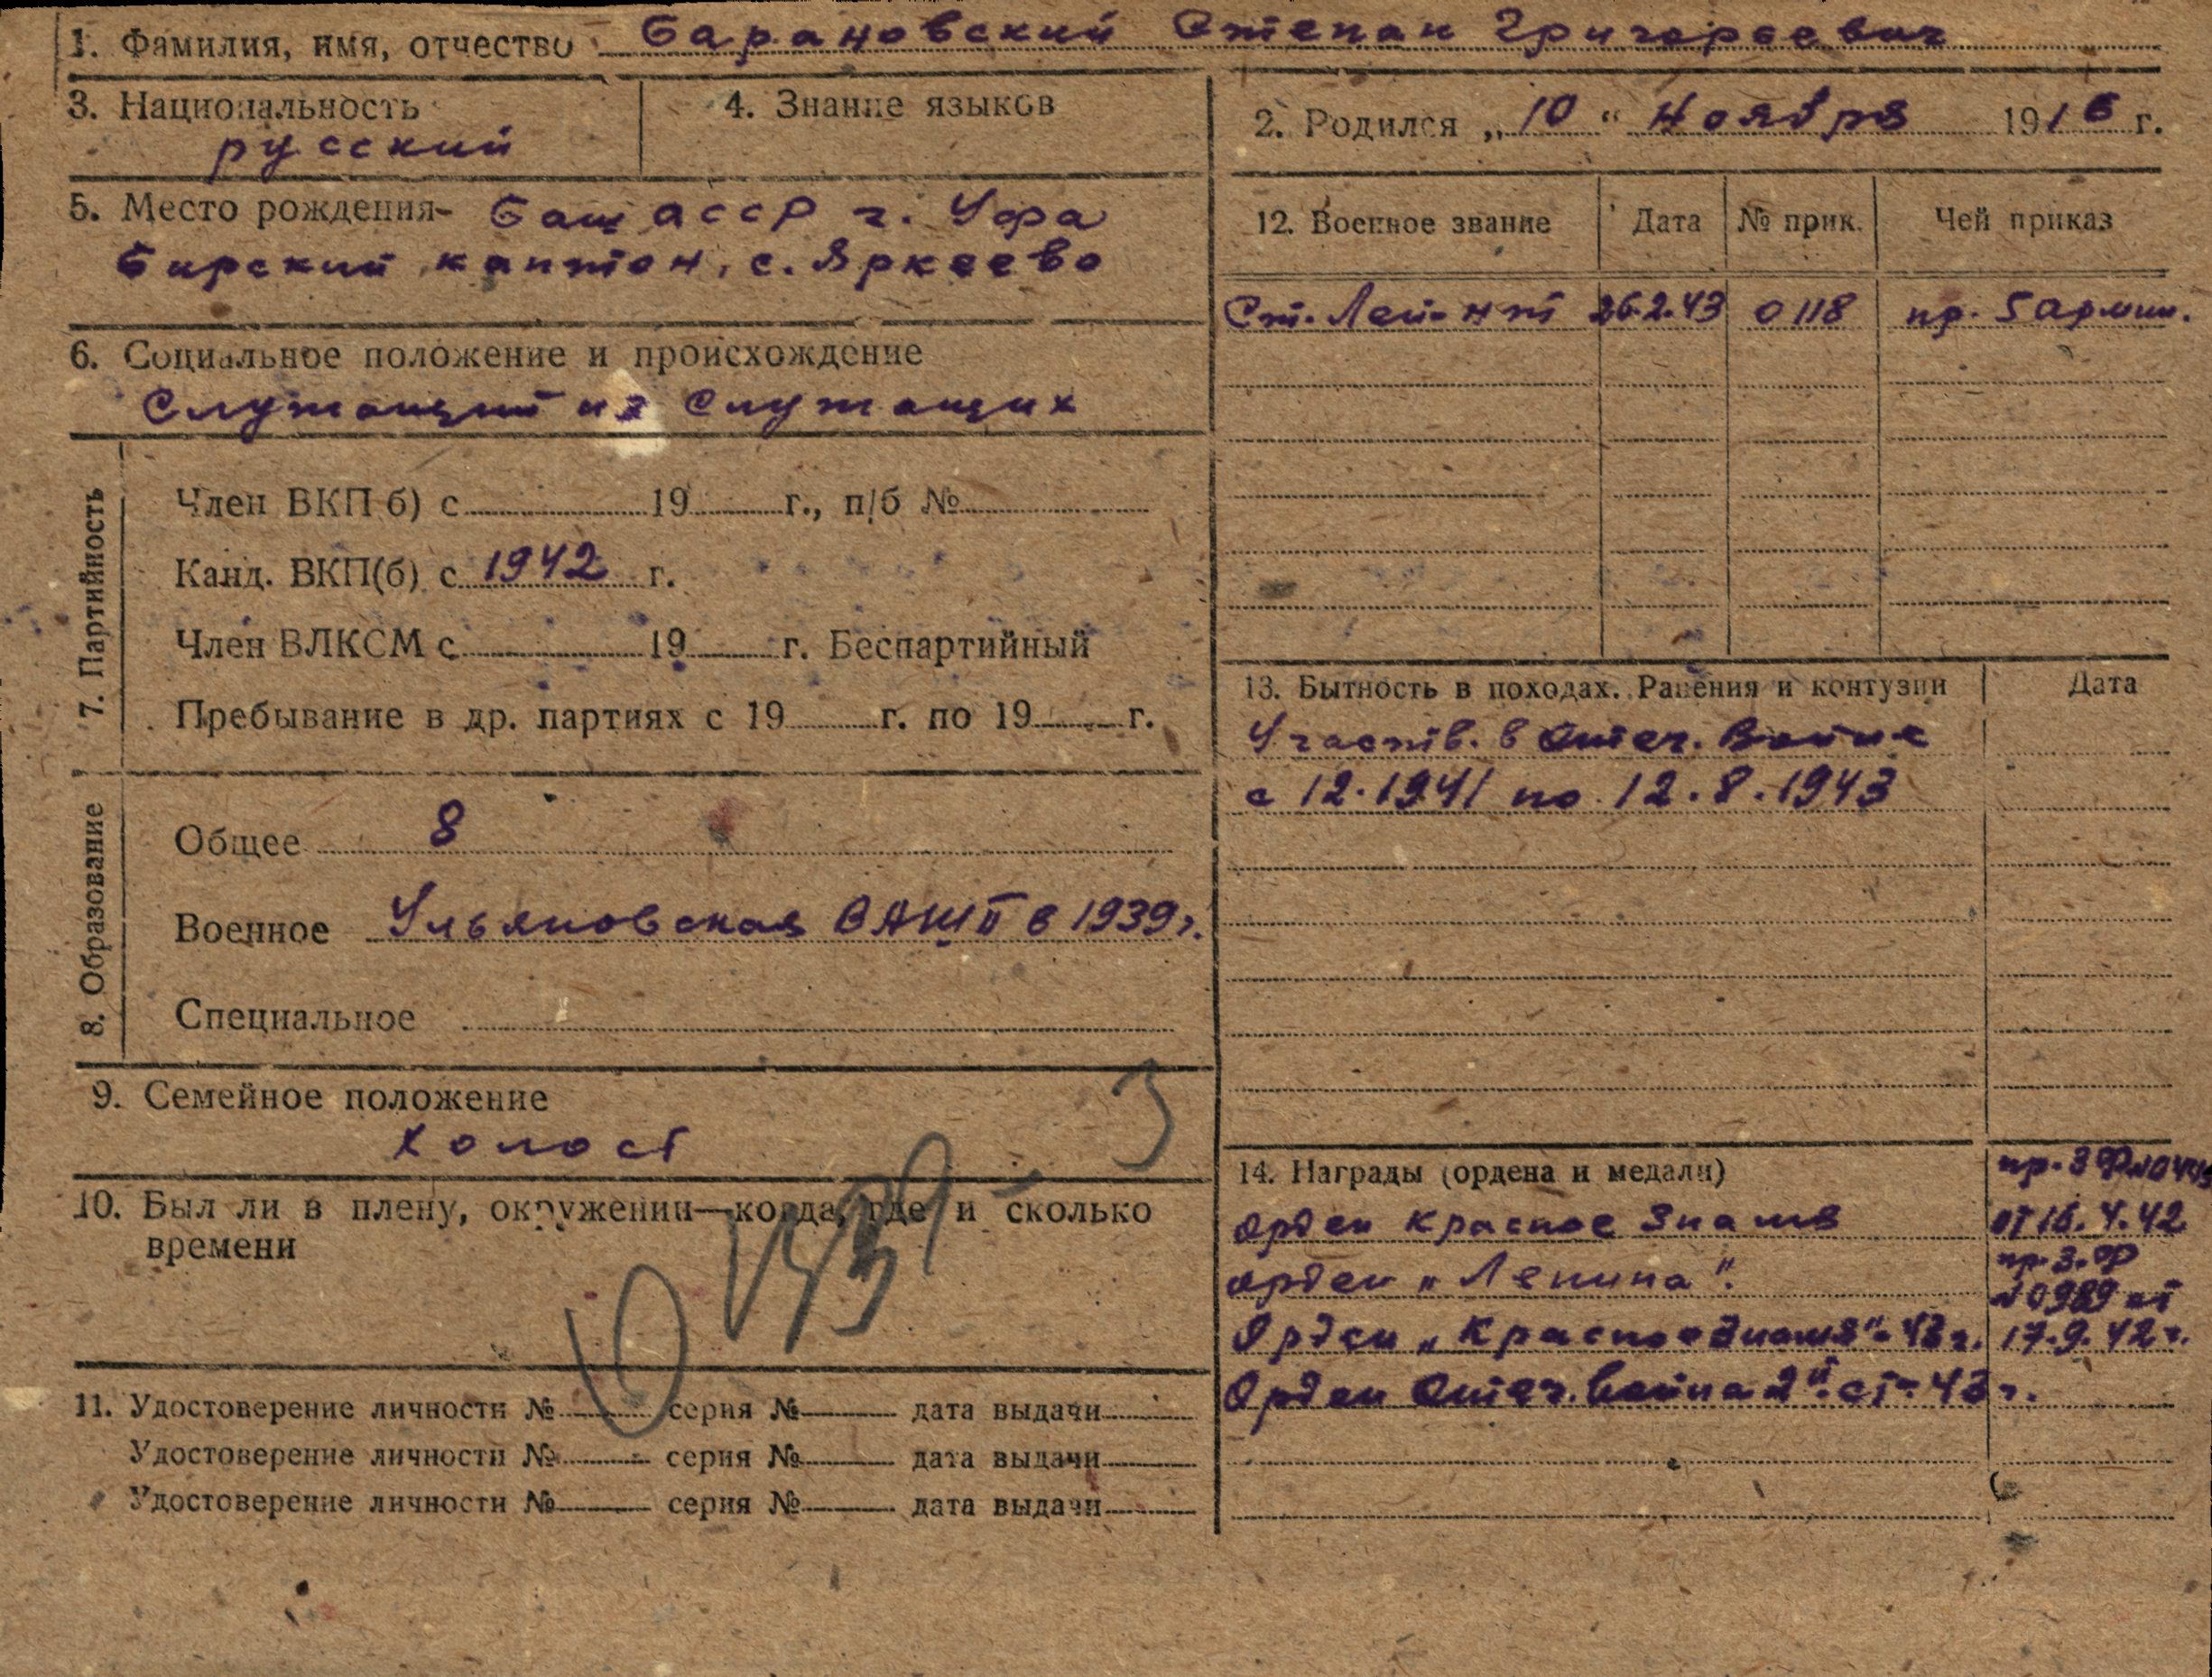 1. Фамилия, имя, отчество Барановский Степан Григорьевич
3. Национальность
русский
4. Знание языков
2. Родился „10“ Ноября 1916 г.
5. Место рождения- Баш АССР г. Уфа
Бирский кантон, с. Яркеево
6. Социальное положение и происхождение
Служащий из служащих
7. Партийность
Член ВКП б) с 19 г., п/б №
Канд. ВКП(б) с 1942 г.
Член ВЛКСМ с 19 г. Беспартийный
Пребывание в др. партиях с 19 г. по 19 г.
8. Образование
Общее 8
Военное Ульяновская ВАШП в 1939 г.
Специальное
9. Семейное положение
холост
3
10. Был ли в плену, окружении—когда, где и сколько
времени
11. Удостоверение личности № серия № дата выдачи
Удостоверение личности № серия № дата выдачи
Удостоверение личности № серия № дата выдачи
12. Военное звание Дата № прик. Чей приказ
Ст. Лей-нт 26.2.43 0118 пр. 5 Армии.
13. Бытность в походах. Ранения и контузии Дата
Участв. в Отеч. Войне
с 12.1941 по 12.8.1943
14. Награды (ордена и медали) пр. 3 Ф
Орден Красное Знамя от 16.4.42
Орден „Ленина". пр. З.Ф
№ 0989 от
Орден „Красное Знамя"- 43 г. 17.9.42 г.
Орден Отеч. Война 2й ст- 43 г.